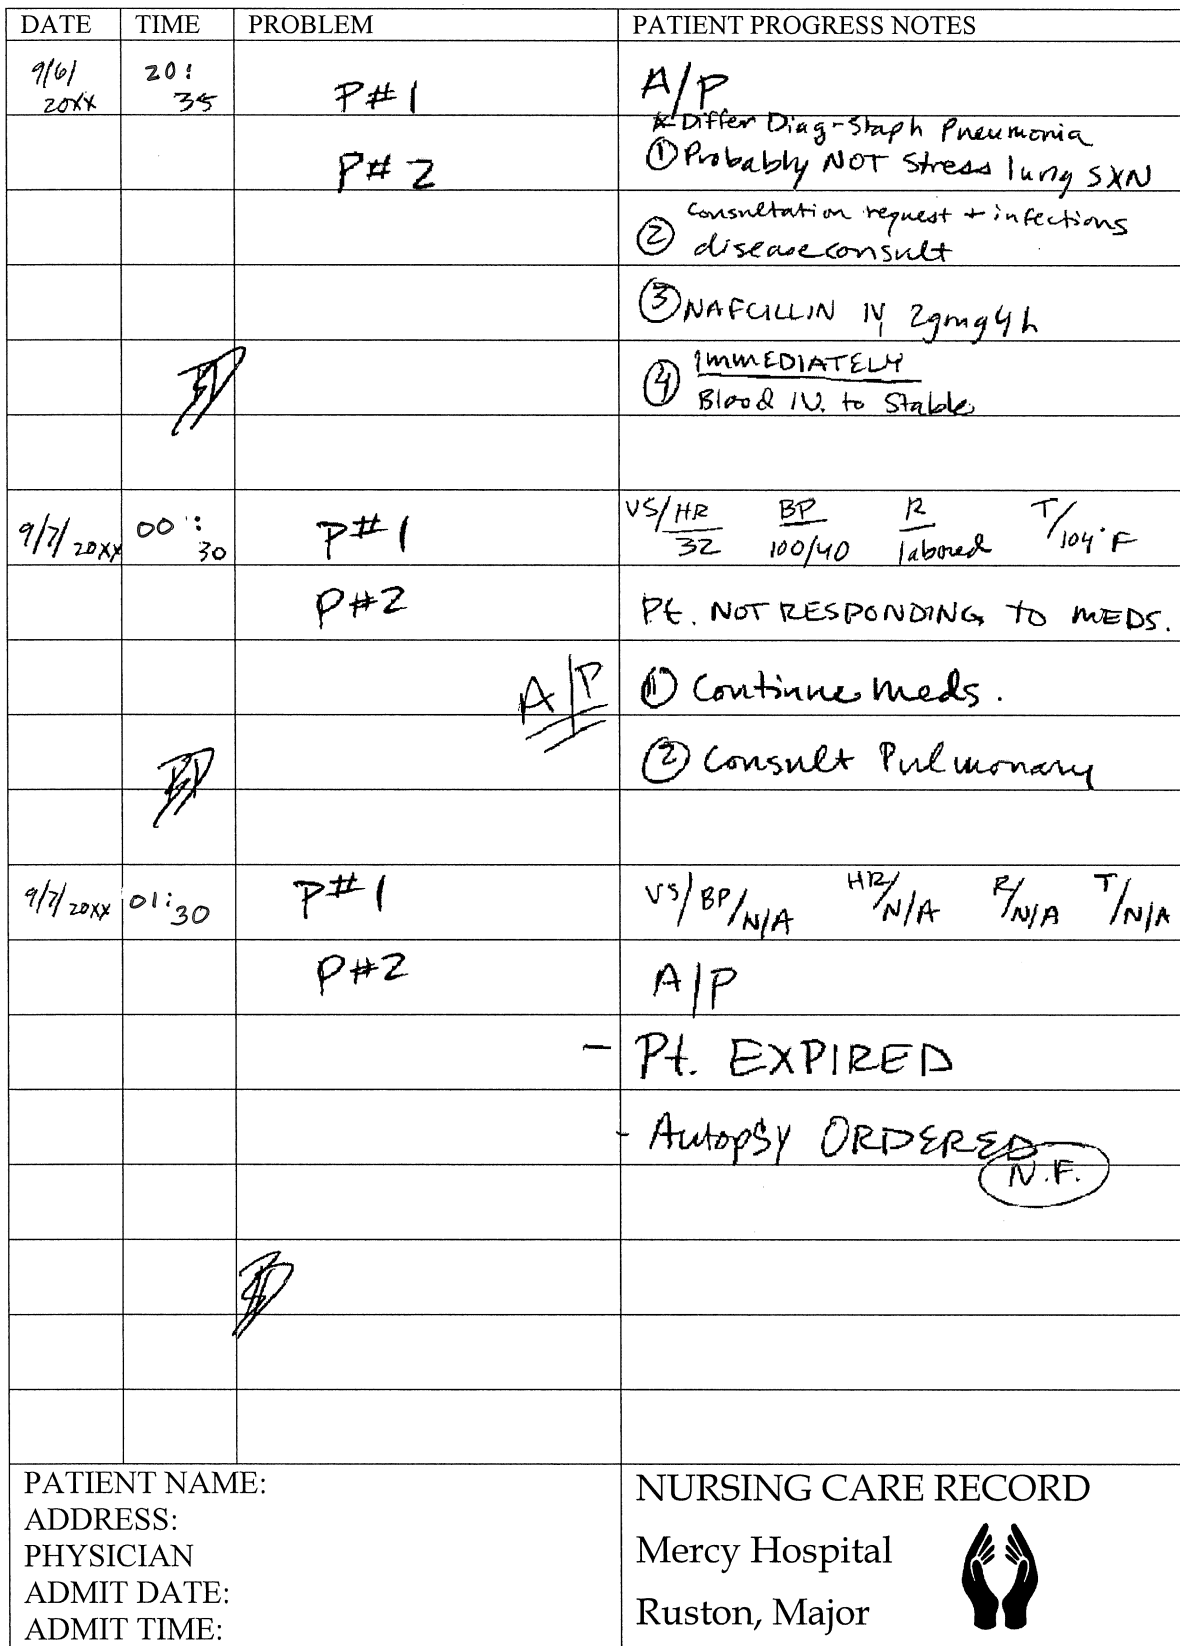 DATE TIME PROBLEM PATIENT PROGRESS NOTES
9/6/ 20xx 20:35 P#1 A/P
* Differ Diag-Staph Pneumonia
P#2 ① Probably NOT Stress lung SXN
② Consultation request + infections
disease consult
③ NAFCILLIN IV 2gmq4h
④ IMMEDIATELY
Blood IV. to Stable
9/7/20xx 00:30 P#1 VS/HR 32 BP 100/40 R labored T/104°F
P#2 Pt. NOT RESPONDING TO MEDS.
A/P ① Continue meds.
② Consult Pulmonary
9/7/20xx 01:30 P#1 VS/BP/N/A HR/N/A R/N/A T/N/A
P#2 A/P
- Pt. EXPIRED
- Autopsy ORDERED
N.F.
PATIENT NAME:
ADDRESS:
PHYSICIAN
ADMIT DATE:
ADMIT TIME:
NURSING CARE RECORD
Mercy Hospital
Ruston, Major